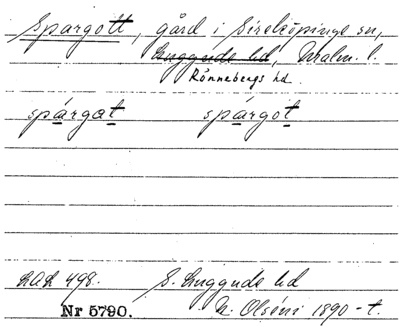 Spargott, gård i Sireköpinge sn,
Luggude hd, Malm. l.
Rönnebergs hd.
spárgat spárgot
LAL 498. S. Luggude hd
Nr 5790. N. Olséni 1890-t.